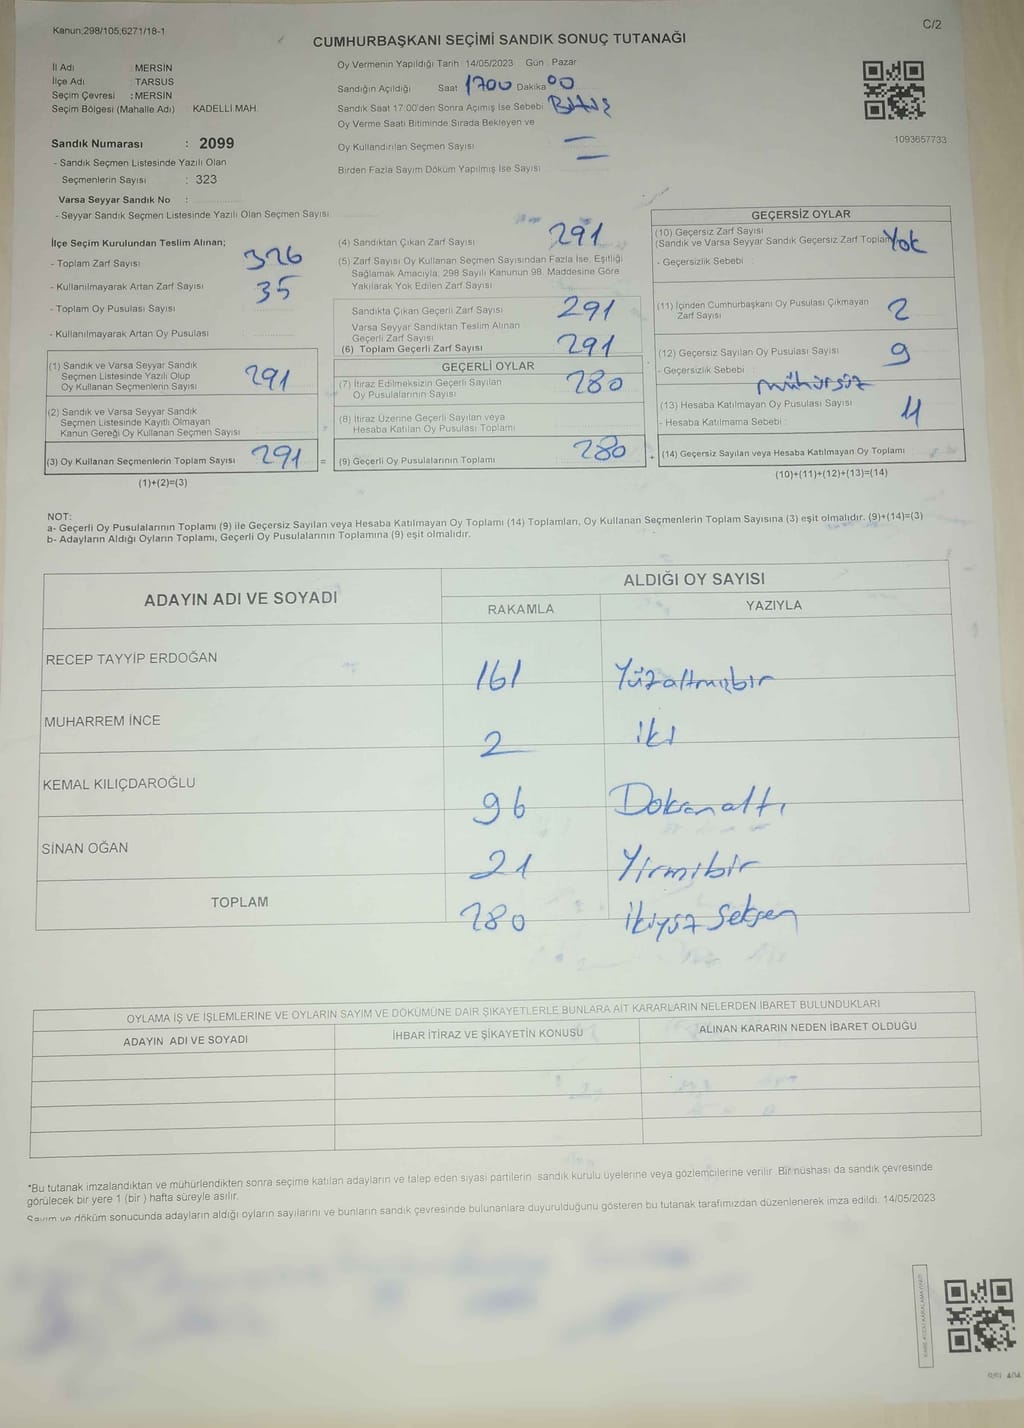 Kanun;298/105;6271/18-1
C/2
CUMHURBAŞKANI SEÇİMİ SANDIK SONUÇ TUTANAĞI
İl Adı : MERSİN
İlçe Adı : TARSUS
Seçim Çevresi : MERSİN
Seçim Bölgesi (Mahalle Adı) KADELLİ MAH.
Sandık Numarası : 2099
- Sandık Seçmen Listesinde Yazılı Olan
Seçmenlerin Sayısı : 323
Varsa Seyyar Sandık No :
- Seyyar Sandık Seçmen Listesinde Yazılı Olan Seçmen Sayısı
Oy Vermenin Yapıldığı Tarih : 14/05/2023 Gün : Pazar
Sandığın Açıldığı Saat 1700 Dakika 00
Sandık Saat 17:00'den Sonra Açımış İse Sebebi
Oy Verme Saati Bitiminde Sırada Bekleyen ve
Oy Kullandırılan Seçmen Sayısı
Birden Fazla Sayım Döküm Yapılmış İse Sayısı
1093657733
İlçe Seçim Kurulundan Teslim Alınan;
- Toplam Zarf Sayısı 326
- Kullanılmayarak Artan Zarf Sayısı 35
- Toplam Oy Pusulası Sayısı
- Kullanılmayarak Artan Oy Pusulası
(1) Sandık ve Varsa Seyyar Sandık
Seçmen Listesinde Yazılı Olup
Oy Kullanan Seçmenlerin Sayısı 291
(2) Sandık ve Varsa Seyyar Sandık
Seçmen Listesinde Kayıtlı Olmayan
Kanun Gereği Oy Kullanan Seçmen Sayısı
(3) Oy Kullanan Seçmenlerin Toplam Sayısı 291 =
(1)+(2)=(3)
(4) Sandıktan Çıkan Zarf Sayısı 291
(5) Zarf Sayısı Oy Kullanan Seçmen Sayısından Fazla İse, Eşitliği
Sağlamak Amacıyla, 298 Sayılı Kanunun 98. Maddesine Göre
Yakılarak Yok Edilen Zarf Sayısı
Sandıkta Çıkan Geçerli Zarf Sayısı 291
Varsa Seyyar Sandıktan Teslim Alınan
Geçerli Zarf Sayısı
(6) Toplam Geçerli Zarf Sayısı 291
GEÇERLİ OYLAR
(7) İtiraz Edilmeksizin Geçerli Sayılan
Oy Pusulalarının Sayısı 280
(8) İtiraz Üzerine Geçerli Sayılan veya
Hesaba Katılan Oy Pusulası Toplamı
(9) Geçerli Oy Pusulalarının Toplamı 280 +
GEÇERSİZ OYLAR
(10) Geçersiz Zarf Sayısı
(Sandık ve Varsa Seyyar Sandık Geçersiz Zarf Toplamı) Yok
- Geçersizlik Sebebi :
(11) İçinden Cumhurbaşkanı Oy Pusulası Çıkmayan
Zarf Sayısı 2
(12) Geçersiz Sayılan Oy Pusulası Sayısı 9
- Geçersizlik Sebebi : mühürsüz
(13) Hesaba Katılmayan Oy Pusulası Sayısı
- Hesaba Katılmama Sebebi : 11
(14) Geçersiz Sayılan veya Hesaba Katılmayan Oy Toplamı
(10)+(11)+(12)+(13)=(14)
NOT:
a- Geçerli Oy Pusulalarının Toplamı (9) ile Geçersiz Sayılan veya Hesaba Katılmayan Oy Toplamı (14) Toplamları, Oy Kullanan Seçmenlerin Toplam Sayısına (3) eşit olmalıdır. (9)+(14)=(3)
b- Adayların Aldığı Oyların Toplamı, Geçerli Oy Pusulalarının Toplamına (9) eşit olmalıdır.
ADAYIN ADI VE SOYADI
ALDIĞI OY SAYISI
RAKAMLA YAZIYLA
RECEP TAYYİP ERDOĞAN 161 Yüzaltmışbir
MUHARREM İNCE 2 iki
KEMAL KILIÇDAROĞLU 96 Doksanaltı
SİNAN OĞAN 21 Yirmibir
TOPLAM 280 ikiyüz Seksen
OYLAMA İŞ VE İŞLEMLERİNE VE OYLARIN SAYIM VE DÖKÜMÜNE DAİR ŞİKAYETLERLE BUNLARA AİT KARARLARIN NELERDEN İBARET BULUNDUKLARI
ADAYIN ADI VE SOYADI İHBAR İTİRAZ VE ŞİKAYETİN KONUSU ALINAN KARARIN NEDEN İBARET OLDUĞU
*Bu tutanak imzalandıktan ve mühürlendikten sonra seçime katılan adayların ve talep eden siyasi partilerin sandık kurulu üyelerine veya gözlemcilerine verilir. Bir nüshası da sandık çevresinde
görülecek bir yere 1 (bir ) hafta süreyle asılır.
Sayım ve döküm sonucunda adayların aldığı oyların sayılarını ve bunların sandık çevresinde bulunanlara duyurulduğunu gösteren bu tutanak tarafımızdan düzenlenerek imza edildi. 14/05/2023